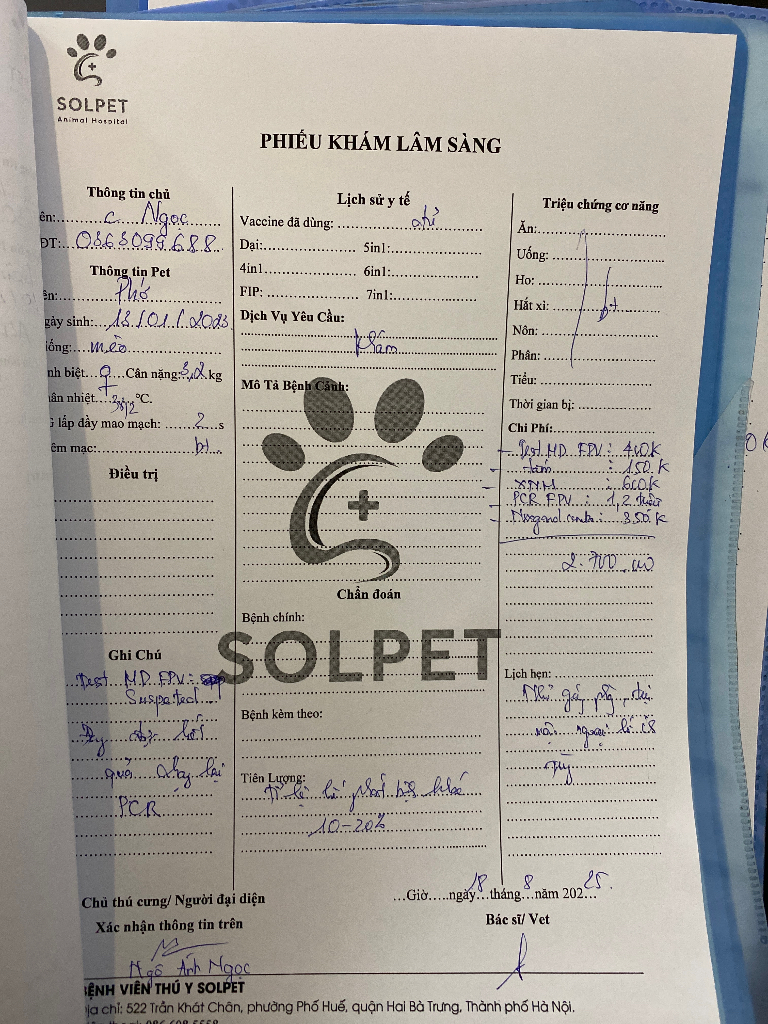 SOLPET
Animal Hospital
PHIẾU KHÁM LÂM SÀNG
Thông tin chủ
ên: c Ngọc
ĐT:
Thông tin Pet
ên: Phở
gày sinh: 13/01/2023
iống: mèo
nh biệt ♀ Cân nặng: 3,2 kg
ân nhiệt °C.
lấp đầy mao mạch: 2 s
êm mạc: bt
Điều trị
Ghi Chú
Test MD FPV:
Suspected
quả chạy lại
PCR
Lịch sử y tế
Vaccine đã dùng:
Dại: 5in1:
4in1 6in1:
FIP: 7in1:
Dịch Vụ Yêu Cầu:
Khám
Mô Tả Bệnh Cảnh:
Chẩn đoán
Bệnh chính:
SOLPET
Bệnh kèm theo:
Tiên Lượng:
10-20%
Triệu chứng cơ năng
Ăn:
Uống:
Ho:
Hắt xì: bt
Nôn:
Phân:
Tiểu:
Thời gian bị:
Chi Phí:
- Test MD FPV: 400K
- : 150K
- XNM : 600K
- PCR FPV : 1,2 triệu
- : 350K
2.700.000
Lịch hẹn:
Chủ thú cưng/ Người đại diện
Xác nhận thông tin trên
Ngô Ánh Ngọc
...Giờ.....ngày 18 tháng 8 năm 2025.
Bác sĩ/ Vet
BỆNH VIỆN THÚ Y SOLPET
ịa chỉ: 522 Trần Khát Chân, phường Phố Huế, quận Hai Bà Trưng, Thành phố Hà Nội.